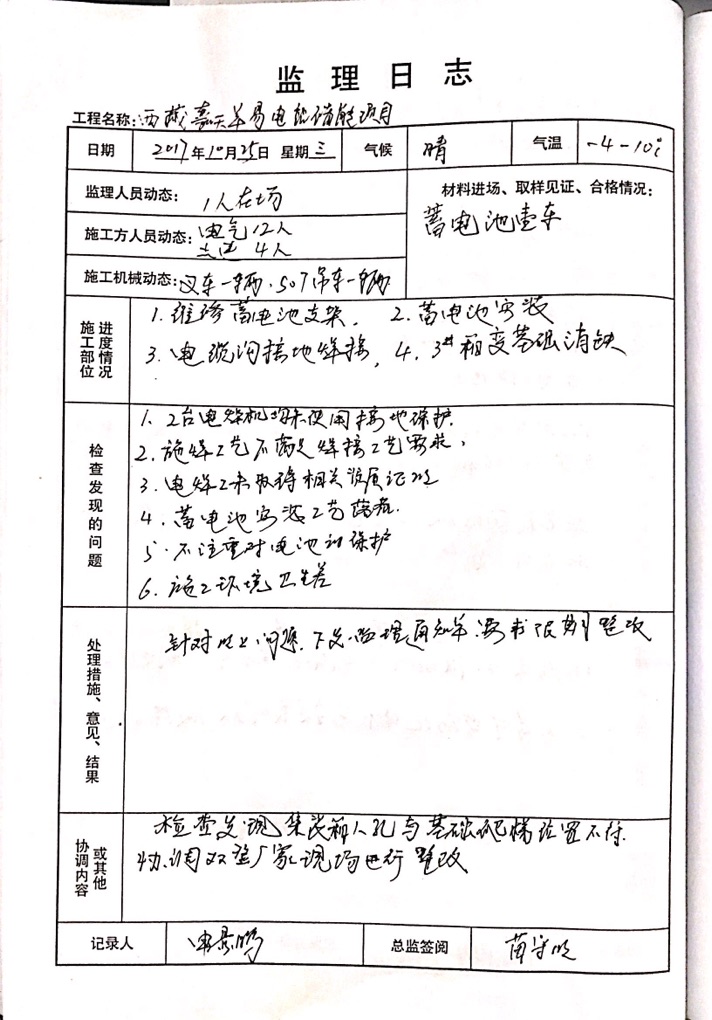 监理日志
工程名称: 西藏嘉天羊易电站储能项目
日期 2017年10月25日 星期三 气候 晴 气温 -4-10℃
监理人员动态: 1人在场
材料进场、取样见证、合格情况:
蓄电池壹车
施工方人员动态: 电气12人
土建 4人
施工机械动态: 叉车一辆.50T吊车一辆
进度情况 施工部位
1. 维修蓄电池支架. 2. 蓄电池安装
3. 电缆沟接地焊接, 4. 3#箱变基础消缺
检查发现的问题
1. 2台电焊机均未使用接地保护.
2. 施焊工艺不满足焊接工艺要求,
3. 电焊工未取得相关资质证明
4. 蓄电池安装工艺
5. 不注重对电池的保护
6. 施工环境卫生差
处理措施、意见、结果
针对以上问题.下发监理通知单.要求限期整改
或其他 协调内容
检查发现集装箱人孔与基础爬梯位置不符.
协调双登厂家现场进行整改
记录人 总监签阅